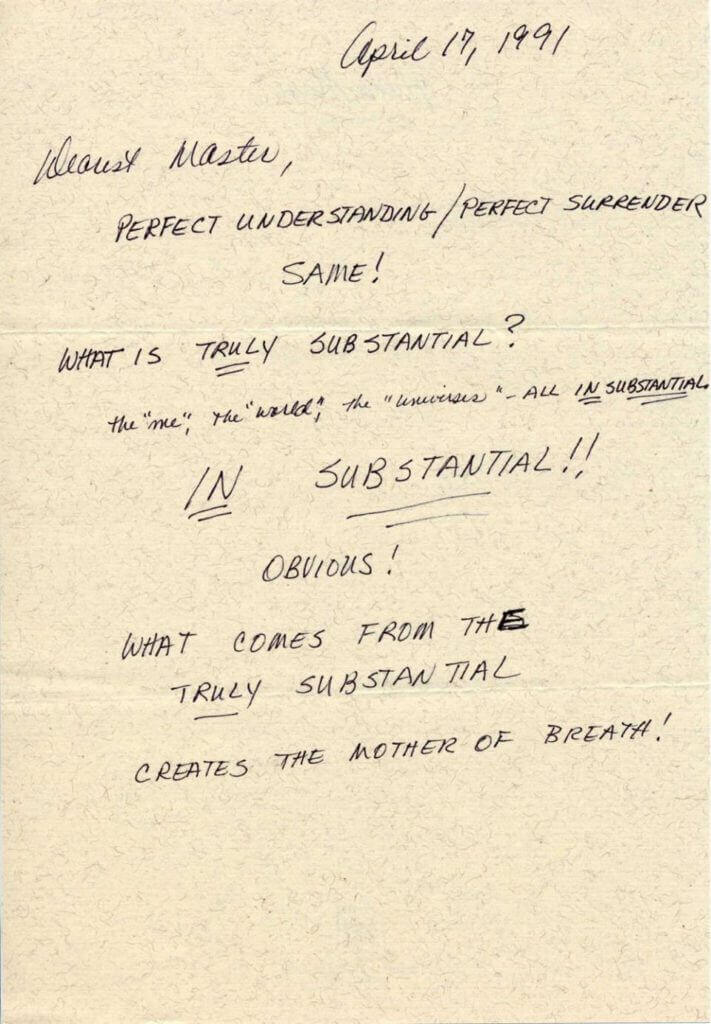 April 17, 1991
Dearest Master,
PERFECT UNDERSTANDING/PERFECT SURRENDER
SAME!
WHAT IS TRULY SUBSTANTIAL?
the "me", the "world", the "universes" - ALL IN SUBSTANTIAL
IN SUBSTANTIAL!!
OBVIOUS!
WHAT COMES FROM THE
TRULY SUBSTANTIAL
CREATES THE MOTHER OF BREATH!